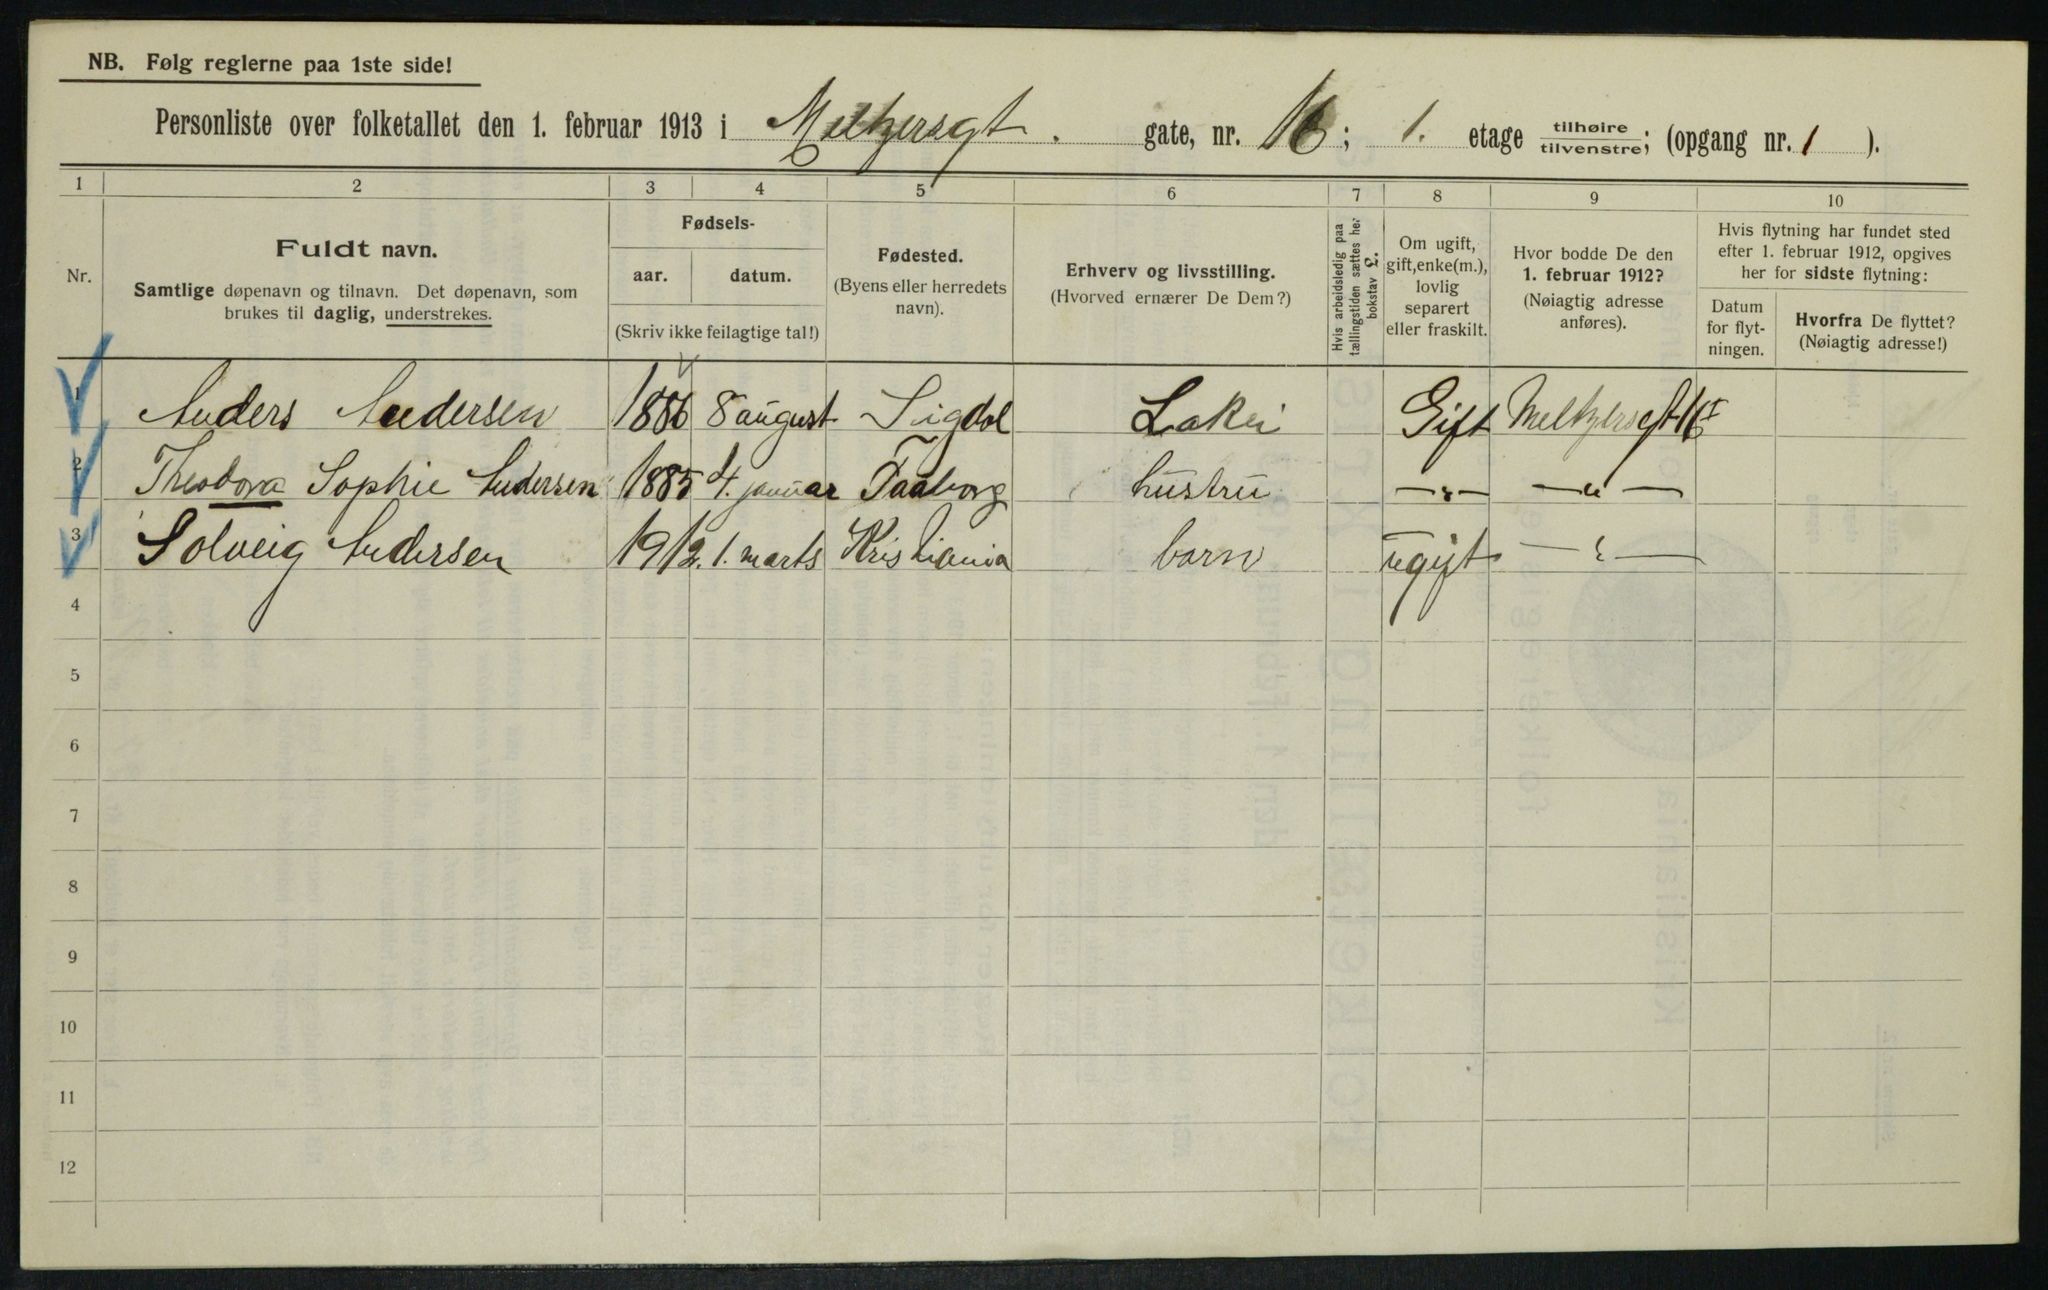 NB. Følg reglerne paa 1ste side!
Personliste over folketallet den 1. februar 1913 i Meltzersgt. gate, nr. 16; 1. etage tilhøire tilvenstre; (opgang nr. 1 ).
1 2 3 4 5 6 7 8 9 10
Nr.
Fuldt navn.
Samtlige døpenavn og tilnavn. Det døpenavn, som
brukes til daglig, understrekes.
Fødsels-
aar. datum.
(Skriv ikke feilagtige tal!)
Fødested.
(Byens eller herredets
navn).
Erhverv og livsstilling.
(Hvorved ernærer De Dem?)
Hvis arbeidsledig paa
tællingstiden sættes her
bokstav L.
Om ugift,
gift, enke(m.),
lovlig
separert
eller fraskilt.
Hvor bodde De den
1. februar 1912?
(Nøiagtig adresse
anføres).
Hvis flytning har fundet sted
efter 1. februar 1912, opgives
her for sidste flytning:
Datum
for flyt-
ningen.
Hvorfra De flyttet?
(Nøiagtig adresse!)
1 Anders Andersen 1886 8 august Sigdal Lakei Gift Meltzersgt 16 I
2 Theodora Sophie Andersen 1885 4. januar Faaborg hustru —"— —"—
3 Solveig Andersen 1912. 1. marts Kristiania barn ugift —"—
4
5
6
7
8
9
10
11
12